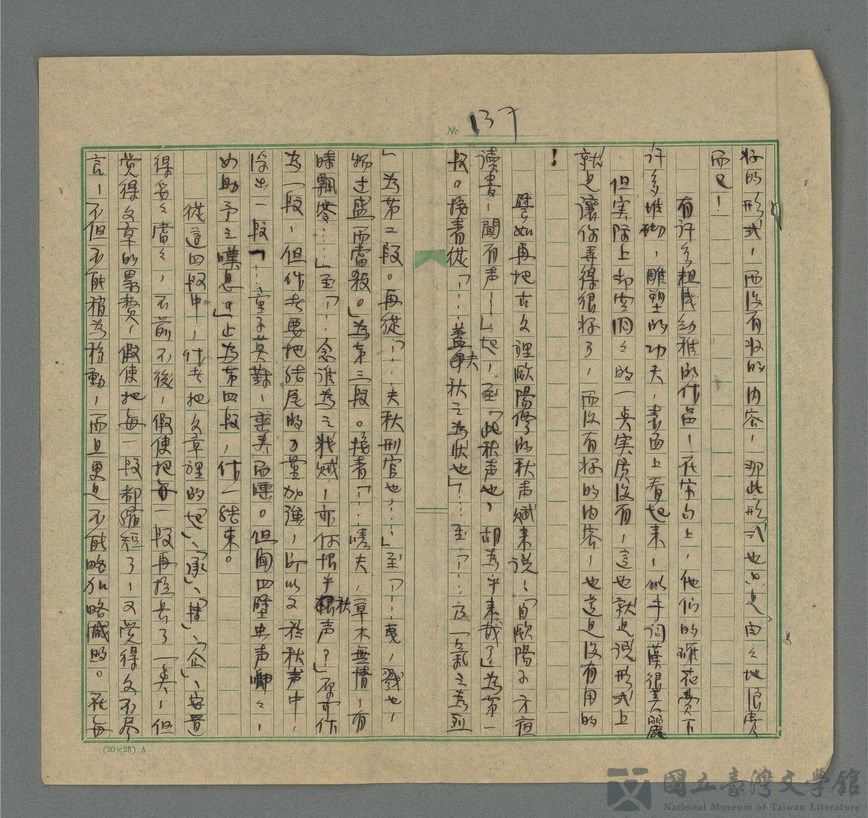 No 137
好的形式,而沒有好的內容,那此形式也只是白々地浪費
而已!
有许多粗浅幼稚的作品,在字句上,他们的確花费下
许多堆砌,雕塑的功夫,表面上看起来,似乎词藻很美麗
但实际上却空洞々的一点实质没有,這也就是说形式上
就是讓你弄得很好了,而没有好的内容,也還是没有用的
!
譬如再把古文裡歐陽修的秋声赋来说:「自歐陽子方夜
读書,聞有声……」起,至「此秋声也,胡為乎来哉?」為第一
段。接著從「……蓋夫秋之為狀也」……至「……乃一氣之為烈
」為第二段。再從「……夫秋刑官也……」至「……夷,戮也,
物过盛而當殺。」為第三段。接着「……嗟夫,草木無情,有
時飄零……」至「……念谁為之戕贼,亦何恨乎秋声?」原可作
為一段,但作者要把结尾的力量加強,所以又於秋声中,
分出一段「……童子莫對,垂头而睡。但聞四壁虫声唧々,
如助予之嘆息。」止為第四段,作一结束。
從這四段中,作者把文章裡的「起」、「承」、「轉」、「合」、安置
得妥々當々,不前不後,假使把每一段再拉长了一点,但
觉得文章的累赘,假使把每一段都縮短了,又觉得文不尽
言,不但不能稍為移動,而且更是不能略加略减的。在每
(20×25) A
國立臺灣文學館
National Museum of Taiwan Literature